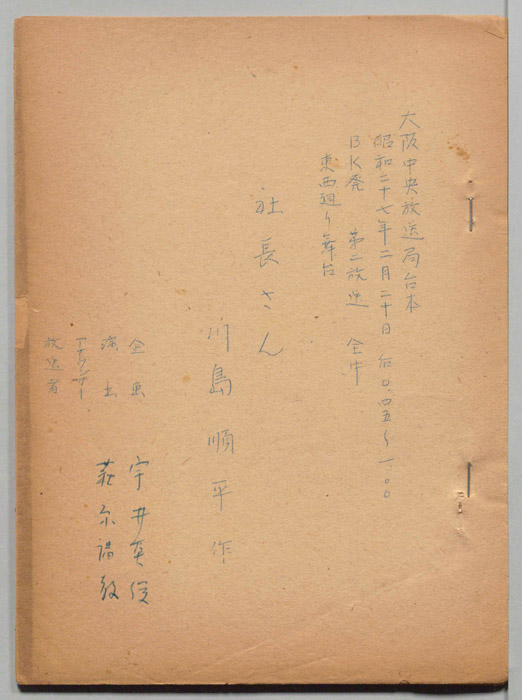 大阪中央放送局台本
昭和二十七年二月二十日 后0.四五〜一.00
BK発 第二放送 全中
東西廻り舞台
社長さん
川島順平作
企画 宇井英俊
演出
アナウンサー
放送者